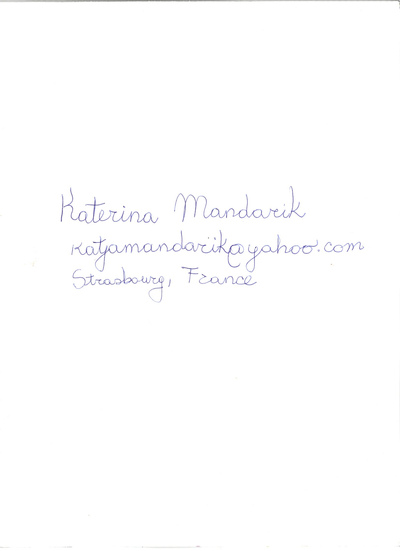 Katerina Mandarik
katjamandarik@yahoo.com
Strasbourg, France